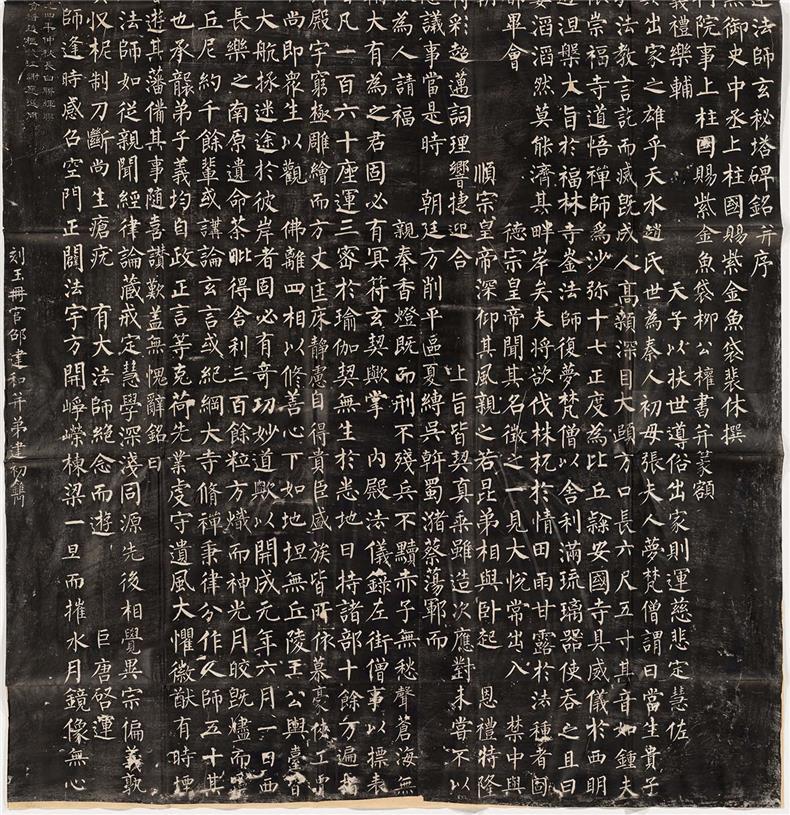 達法師玄秘塔碑銘并序
兼御史中丞上柱國賜紫金魚袋裴休撰
院事上柱國賜紫金魚袋柳公權書并篆額
義禮樂輔 天子以扶世導俗出家則運慈悲定慧佐
其出家之雄乎天水趙氏世為秦人初母張夫人夢梵僧謂曰當生貴子
法教言訖而滅既成人高顙深目大頤方口長六尺五寸其音如鍾夫
依崇福寺道悟禪師為沙弥十七正度為比丘隸安國寺具威儀於西明
通涅槃大旨於福林寺崟法師復夢梵僧以舍利滿琉璃器使吞之且曰
委滔滔然莫能濟其畔岸矣夫將欲伐株杌於情田雨甘露於法種者固
畢會 德宗皇帝聞其名徵之一見大悅常出入 禁中與
順宗皇帝深仰其風親之若昆弟相與卧起 恩禮特隆
符彩超邁詞理響捷迎合 上旨皆契真乘雖造次應對未嘗不以
思議事當是時 朝廷方削平區夏縛吳斡蜀瀦蔡蕩鄆而
為人請福 親奉香燈既而刑不殘兵不黷赤子無愁聲蒼海無
大有為之君固必有冥符玄契歟掌 內殿法儀錄左街僧事以摽表
凡一百六十座運三密於瑜伽契無生於悉地日持諸部十餘万遍指
殿宇窮極雕繪而方丈匡床靜慮自得貴臣盛族皆所依慕豪俠工賈
尚即衆生以觀 佛離四相以修善心下如地坦無丘陵王公輿臺皆
大航拯迷途於彼岸者固必有奇功妙道歟以開成元年六月一日西
長樂之南原遺命荼毗得舍利三百餘粒方熾而神光月皎既燼而靈
丘尼約千餘輩或講論玄言或紀綱大寺脩禪秉律分作人師五十其
也承襲弟子義均自政正言等克荷先業虔守遺風大懼徽猷有時堙
遊其藩備其事隨喜讚歎蓋無愧辭銘曰
法師如從親聞經律論藏戒定慧學深淺同源先後相覺異宗偏義孰
杻制刀斷尚生瘡疣 有大法師絶念而遊 巨唐啓運
師逢時感召空門正闢法宇方開崢嶸棟梁一旦而摧水月鏡像無心
刻玉冊官邵建和并弟建初鐫